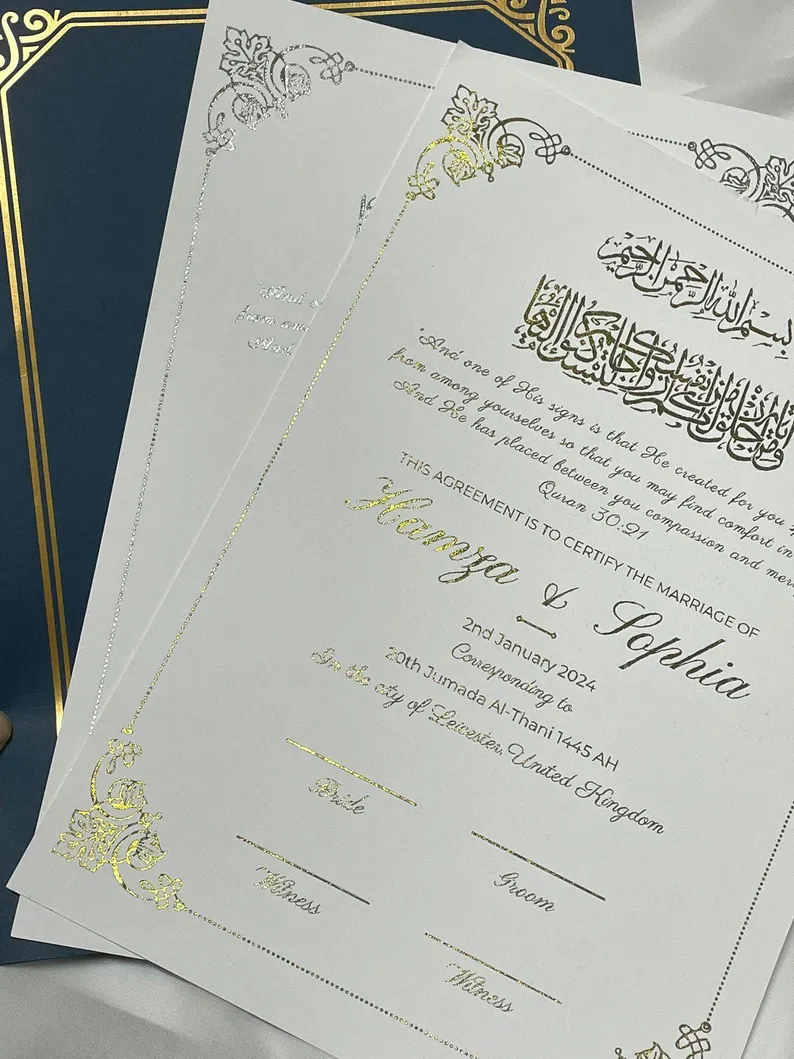 بسم الله الرحمن الرحيم
ومن آياته أن خلق لكم من أنفسكم أزواجا لتسكنوا إليها
"And one of His signs is that He created for you
from among yourselves so that you may find comfort in
And He has placed between you compassion and
Quran 30:21
THIS AGREEMENT IS TO CERTIFY THE MARRIAGE OF
Hamza & Sophia
2nd January 2024
Corresponding to
20th Jumada Al-Thani 1445 AH
In the city of Leicester, United Kingdom
Bride
Groom
Witness
Witness
"And
from
And